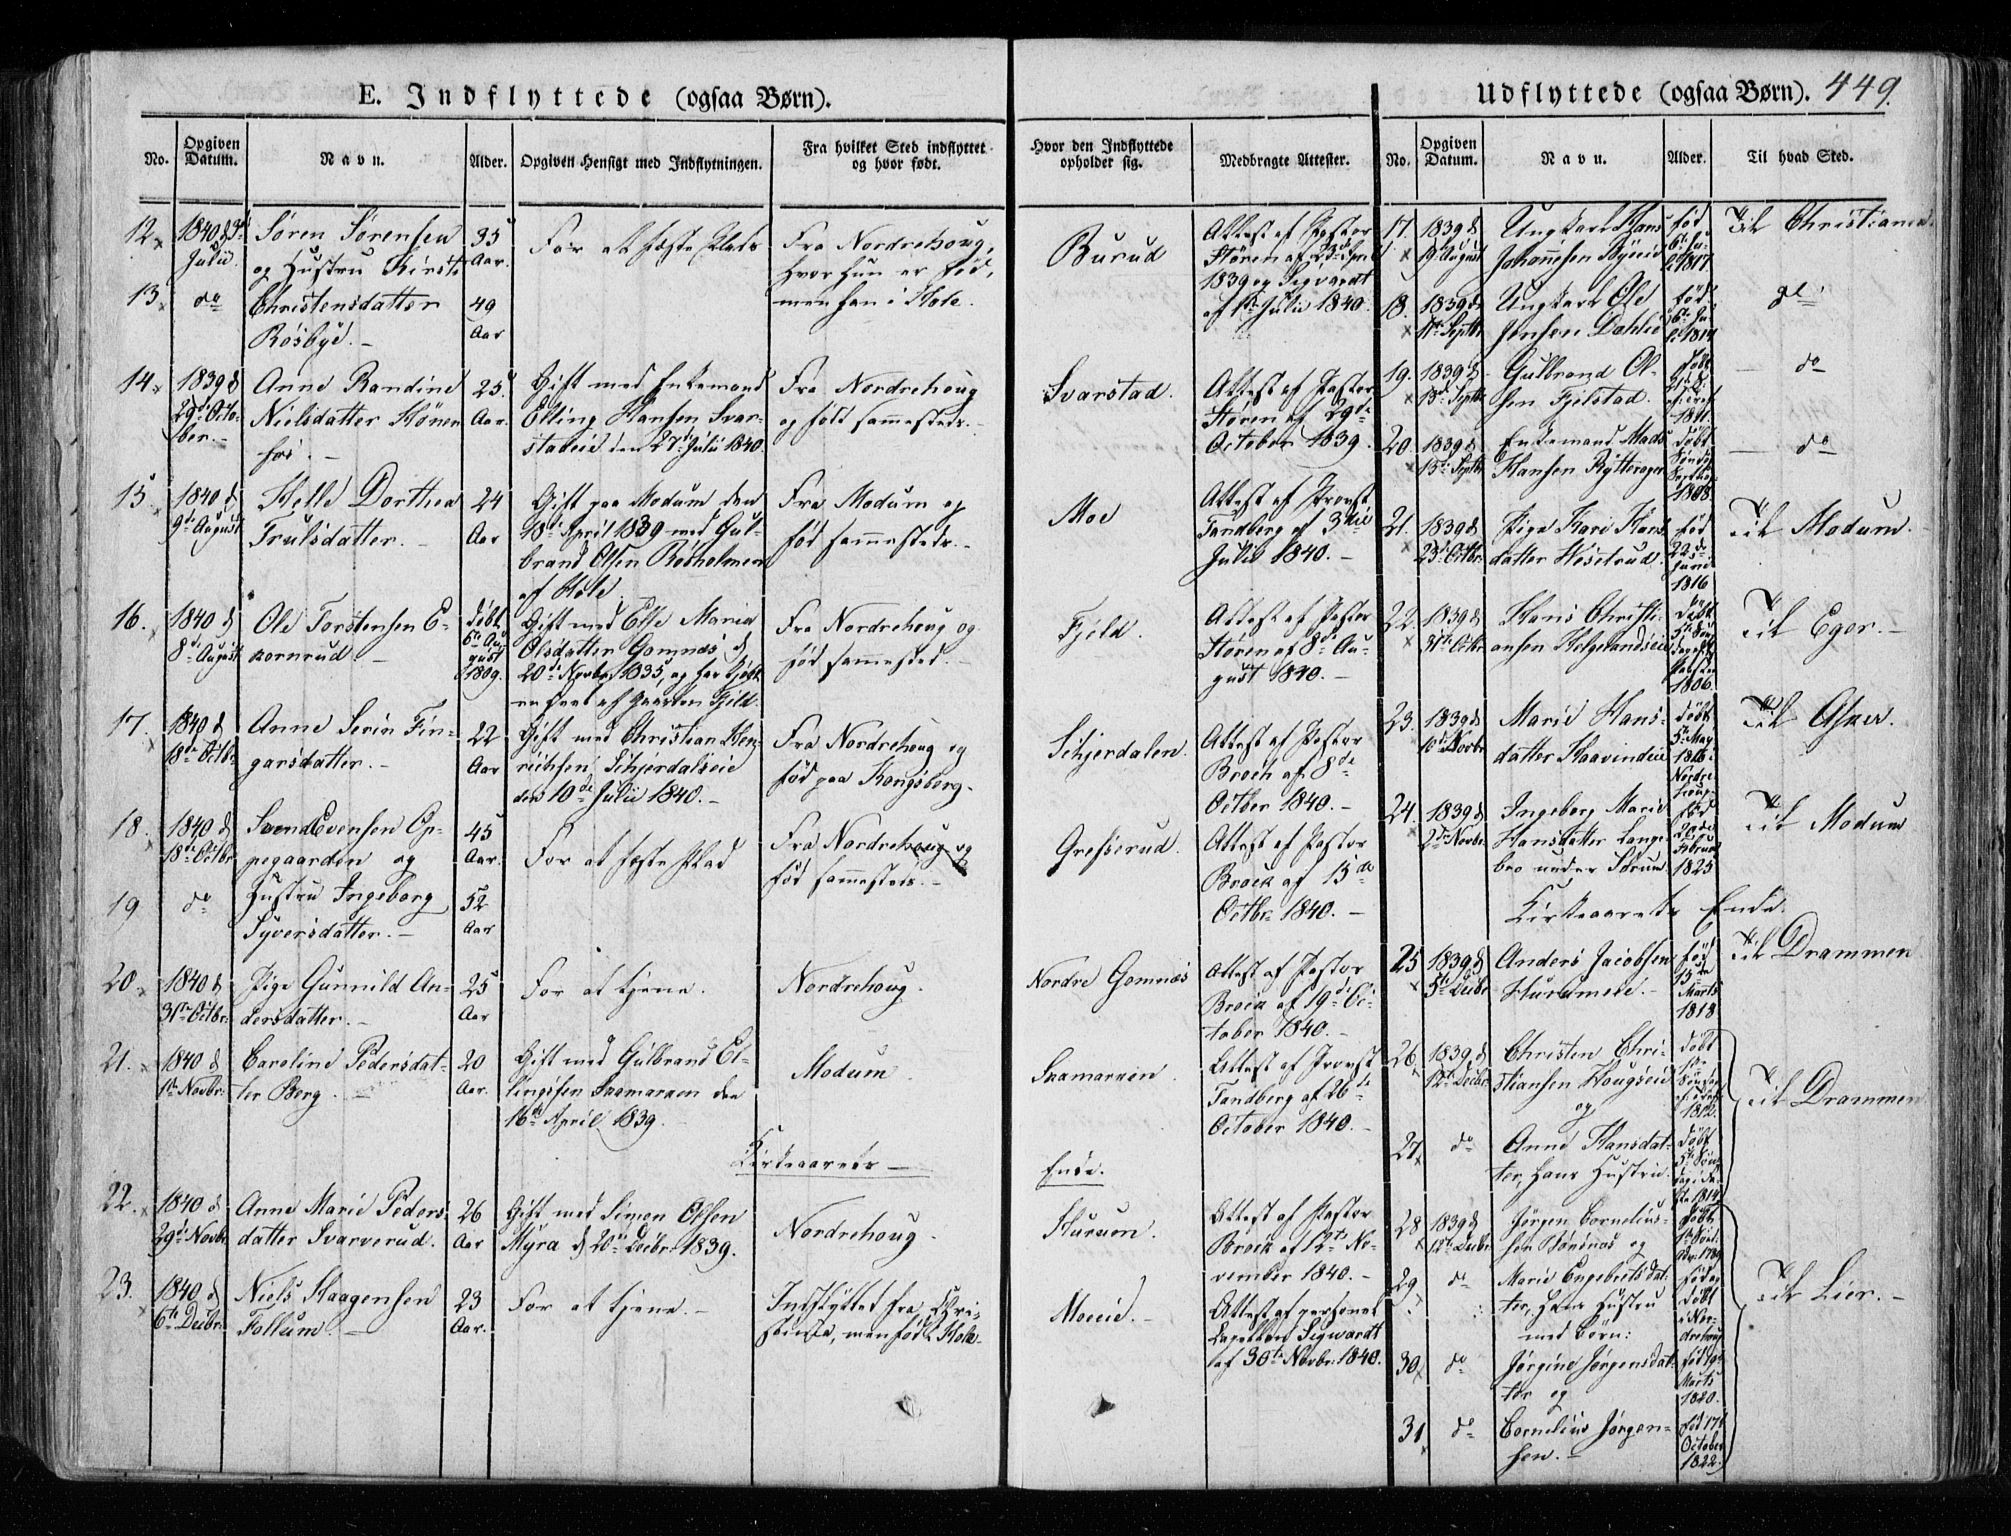 E. Indflyttede (ogsaa Børn).
No.
Opgiven Datum.
Navn.
Alder.
Opgiven Hensigt med Indflytningen.
Fra hvilket Sted indflyttet og hvor født.
Hvor den Indflyttede opholder sig.
Medbragte Attester.
12
1840 d 3d
Julii
Søren Sørensen
og Hustru Kirsti
35
Aar.
For at fæste Plads
Fra Nordrehoug,
hvor hun er fød,
men han i Hole.
Burud
Attest af Pastor
Støren af 23d April
1839 og Sigvardt
af 1ste Julii 1840.
13
do
Christensdatter
Røsbye.
49
Aar
14
1839 d
29de Octo-
ber.
Anne Randine
Nielsdatter Hønen
25
Aar.
Gift med Enkemand
Elling Hansen Svar-
stadeie den 27de Julii 1840.
Fra Nordrehoug
og født sammesteds.
Svarstad.
Attest af Pastor
Støren af 29de
October 1839.
15
1840 d
9de August
Helle Dorthea
Trulsdatter.
24
Aar
Gift paa Modum den
18de April 1839 med Gul-
brand Olsen Røsholmen
af Hole.
Fra Modum og
fød sammesteds.
Moe
Attest af Provst
Tandberg af 3die
Julii 1840.
16.
1840 d
8de August
Ole Torstensen E-
kornrud.
døbt
6te Au-
gust
1809.
Gift med Else Maria
Olsdatter Gomnæs d
20de Novbr 1835, og har kjøbt
en part af Gaarden Fjeld.
Fra Nordrehoug og
fød sammested.
Fjeld.
Attest af Pastor
Støren af 8de Au-
gust 1840.
17.
1840 d
18de Octbr
Anne Serin Fin-
garsdatter.
22
Aar
Gift med Christian Hen-
richsen Schjerdalseie
den 10de Julii 1840.
Fra Nordrehoug og
fød paa Kongsberg.
Schjerdalen.
Attest af Pastor
Broch af 8de
Octber 1840.
18.
1840 d
18de Octbr
Svend Evensen Op-
pegaarden og
45
Aar.
For at fæste Plad
Fra Nordrehoug og
fød sammesteds.
Grefserud.
Attest af Pastor
Broch af 15de
Octbr 1840.
19
do
Hustru Ingeborg
Syversdatter.
52
Aar
20
1840 d
31te Octbr
Pige Gunnild An-
dersdatter.
25
Aar
For at tjene.
Nordrehoug.
Nordre Gomnæs
Attest af Pastor
Broch af 19de Oc-
tober 1840.
21.
1840 d
1ste Novbr
Caroline Pedersdat-
ter Berg.
20
Aar.
Gift med Gulbrand El-
lingsen Saamarken den
16de April 1839.
Modum
Saamarken
Attest af Provst
Tandberg af 26de
October 1840.
Kirkeaarets
Ende.
22.
1840 d
29de Novbr
Anne Marie Peders-
datter Svarverud.
26
Aar
Gift med Simon Olsen
Myra d 20de Decbr 1839.
Nordrehoug.
Sturum.
Attest af Pastor
Broch af 12te No-
vember 1840.
23.
1840 d
6te Decbr
Niels Haagensen
Follum.
23
Aar.
For at tjene.
Indflyttet fra Chri-
stiania, men fød i Hole.
Moeie.
Attest af personel
Capellan Sigwardt
af 30te Novbr 1840.
Udflyttede (ogsaa Børn). 449.
No.
Opgiven Datum.
Navn.
Alder.
Til hvad Sted.
17.
1839 d
19 August
Ungkarl Hans
Johannesen
fød
1817.
Til Christiania
18.
1839 d
11te Septbr
Ungkarl Ole
Jensen Dahlie
fød
1814
19.
1839 d
13de Septbr
Gulbrand Ol-
sen Fjelstad.
døbt
1811.
do
20.
1839 d
15de Septbr
Enkemand Mads
Hansen Rytteragen
døbt
1808.
do
21.
1839 d
23de Octbr
Pige Kari Hans-
datter Wesetrud.
fød
22de
Juni
1816
Til Modum.
22
1839 d
31te Octbr
Hans Christi-
ansen Helgelandseie
døbt
1806.
Til Eger.
23.
1839 d
10de Novbr
Marie Hans-
datter Haavindeie
døbt
5te May
1816 i
Nordre-
houg
Til Asker.
24.
1839 d
2den Novbr
Ingeborg Marie
Hansdatter Lange-
bro under Sørum.
fød
Februar
1825
Til Modum
Kirkeaarets Ende.
25
1839 d
5te Decbr
Anders Jacobsen
fød
15de
Marts
1818
Til Drammen
26.
1839 d
12te Decbr
Christen Chri-
stiansen Hougseie
og
døbt
1812.
Til Drammen
27
do
Anne Hansdat-
ter, hans Hustru.
døbt
1814
28
1839 d
12te Decbr
Jørgen Cornelius-
sen Bønsnæs og
døbt
1789
Til Lier.
29
do
Marie Engebretsdat-
ter, hans Hustru
med børn:
fød og
døbt
i Nor-
drehoug
30
do
Jørgine Jørgensdat-
ter og
fød 19de
Marts
1820.
31
do
Cornelius Jørgen-
sen.
fød 17de
October
1822.